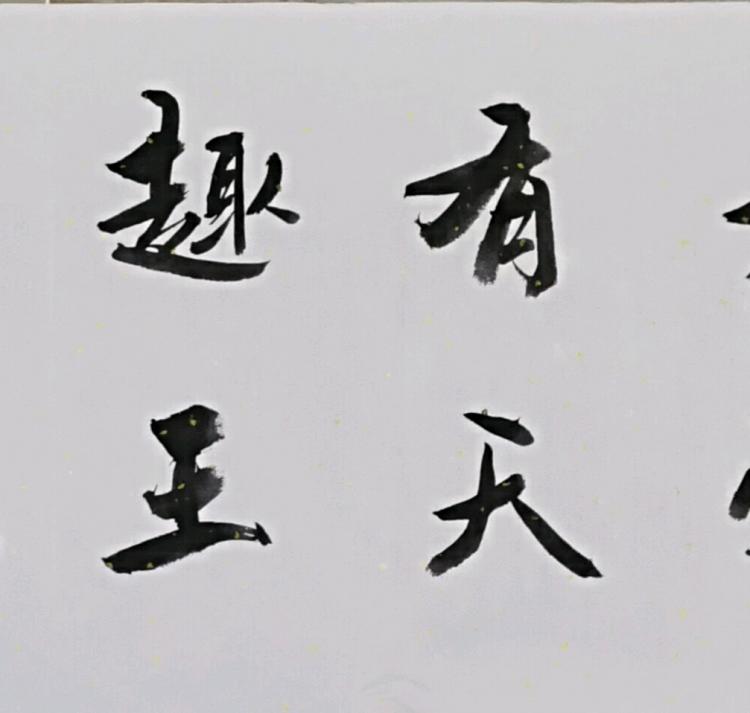 有天
趣王